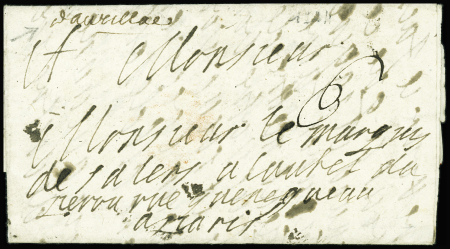 d'aurillac
A Monsieur
6
Monsieur le marquis
de salers a lautel du
perou rue guenegueau
a paris